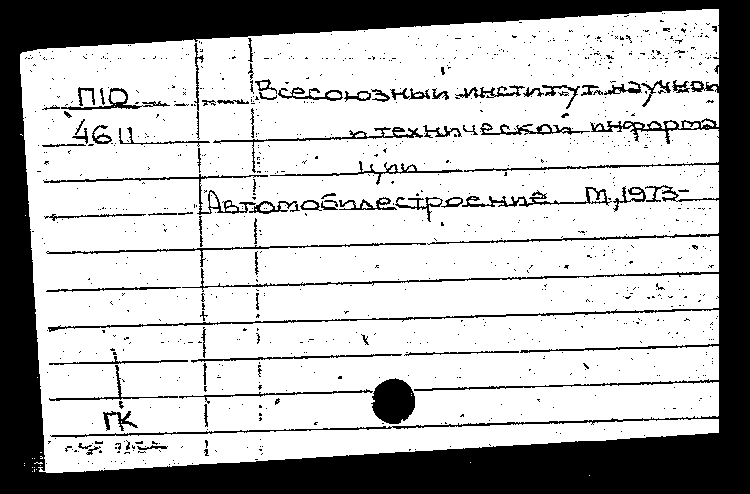 П10 Всесоюзный институт научной
4611 и технической информа
ции
Автомобилестроение. М, 1973-
ГК